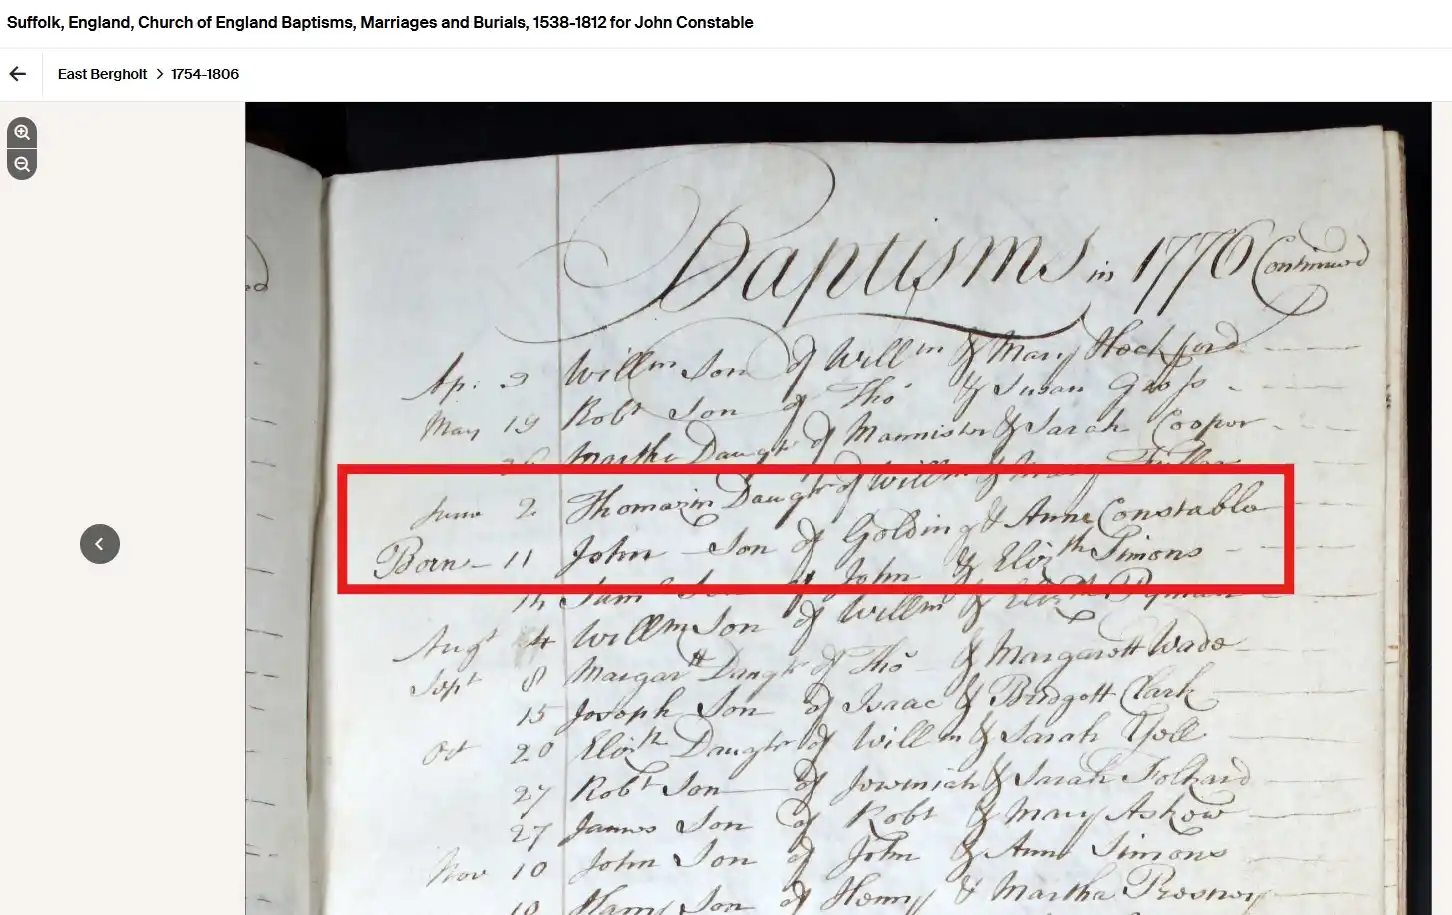 Suffolk, England, Church of England Baptisms, Marriages and Burials, 1538-1812 for John Constable
East Bergholt > 1754-1806
Baptisms in 1776 Continued
Ap: 3 Willm Son of Willm & Mary Hockford
May 19 Robt Son of Tho & Susan Gross
26 Martha Daugr of Mannister & Sarah Cooper
June 2 Thomazin Daugr of Willm & Mary Fuller
Born 11 John Son of Golding & Ann Constable
14 Sam Son of John & Elizth Simons
Augt 4 Willm Son of Willm & Elizth Pyman
Sept 8 Margartt Daugtr of Tho & Margarett Wade
15 Joseph Son of Isaac & Bridgett Clark
Oct 20 Elizth Daugtr of Willm & Sarah
27 Robt Son of Jeremiah & Sarah Folkard
27 James Son of Robt & Mary Askew
Nov 10 John Son of John & Ann Simons
10 Son of Henry & Martha